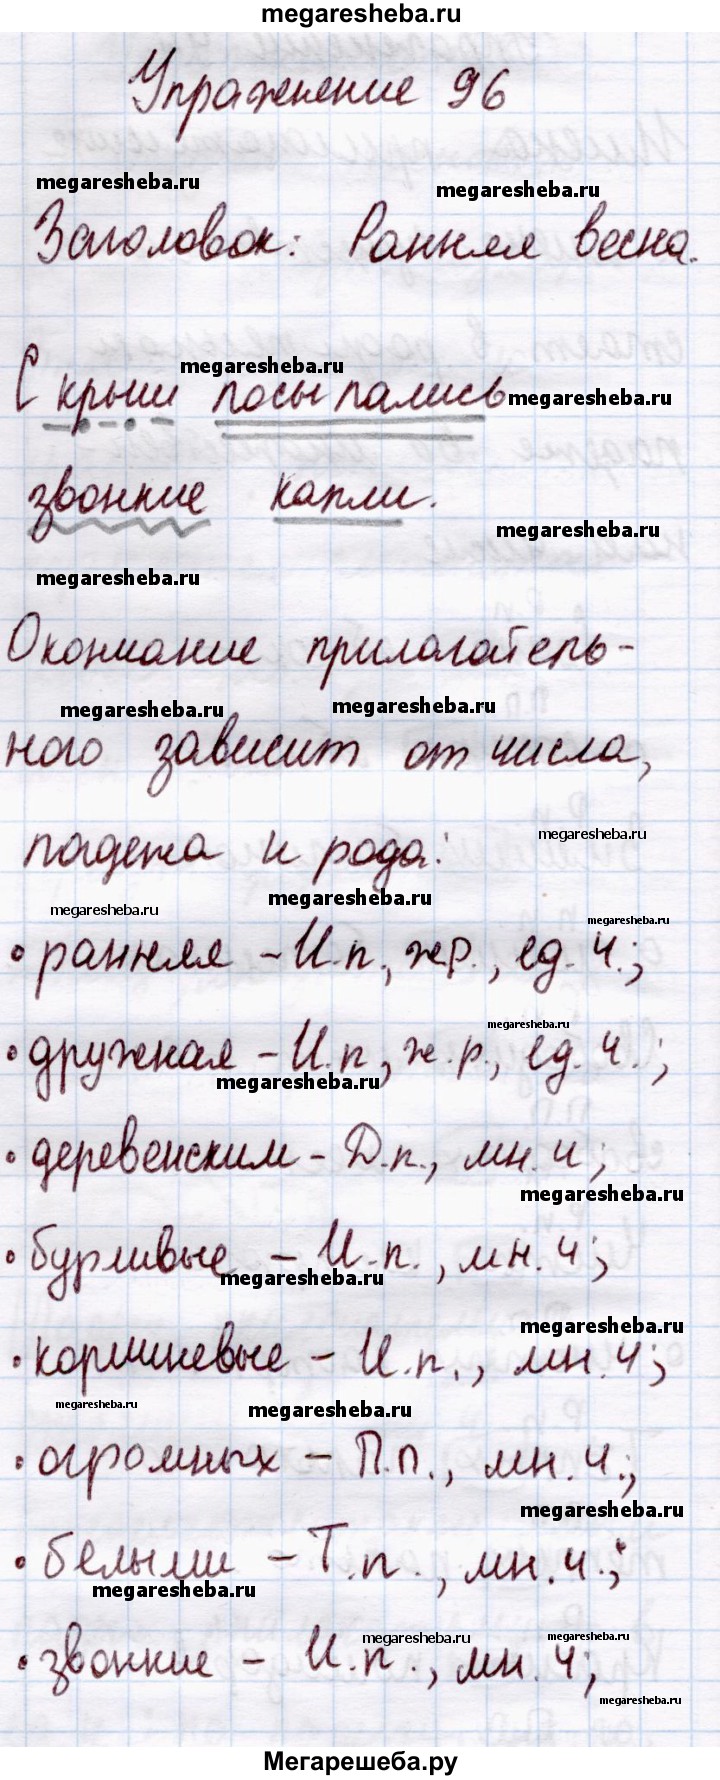 megaresheba.ru
Упражнение 96
megaresheba.ru
megaresheba.ru
Заголовок: Ранняя весна.
megaresheba.ru
С крыш посыпались
megaresheba.ru
звонкие капли.
megaresheba.ru
megaresheba.ru
Окончание прилагатель-
megaresheba.ru
megaresheba.ru
ного зависит от числа,
megaresheba.ru
падежа и рода:
megaresheba.ru
megaresheba.ru
megaresheba.ru
• ранняя – И.п., ж.р., ед. ч.;
megaresheba.ru
• дружная – И.п, ж.р., ед. ч.;
megaresheba.ru
• деревенским – Д.п., мн. ч;
megaresheba.ru
• бурливые – И.п., мн. ч;
megaresheba.ru
megaresheba.ru
• коричневые – И.п., мн. ч;
megaresheba.ru
megaresheba.ru
• огромных – П.п., мн. ч.;
megaresheba.ru
• белыми – Т.п., мн. ч.;
megaresheba.ru
megaresheba.ru
megaresheba.ru
• звонкие – И.п., мн. ч;
megaresheba.ru
Мегарешеба.ру